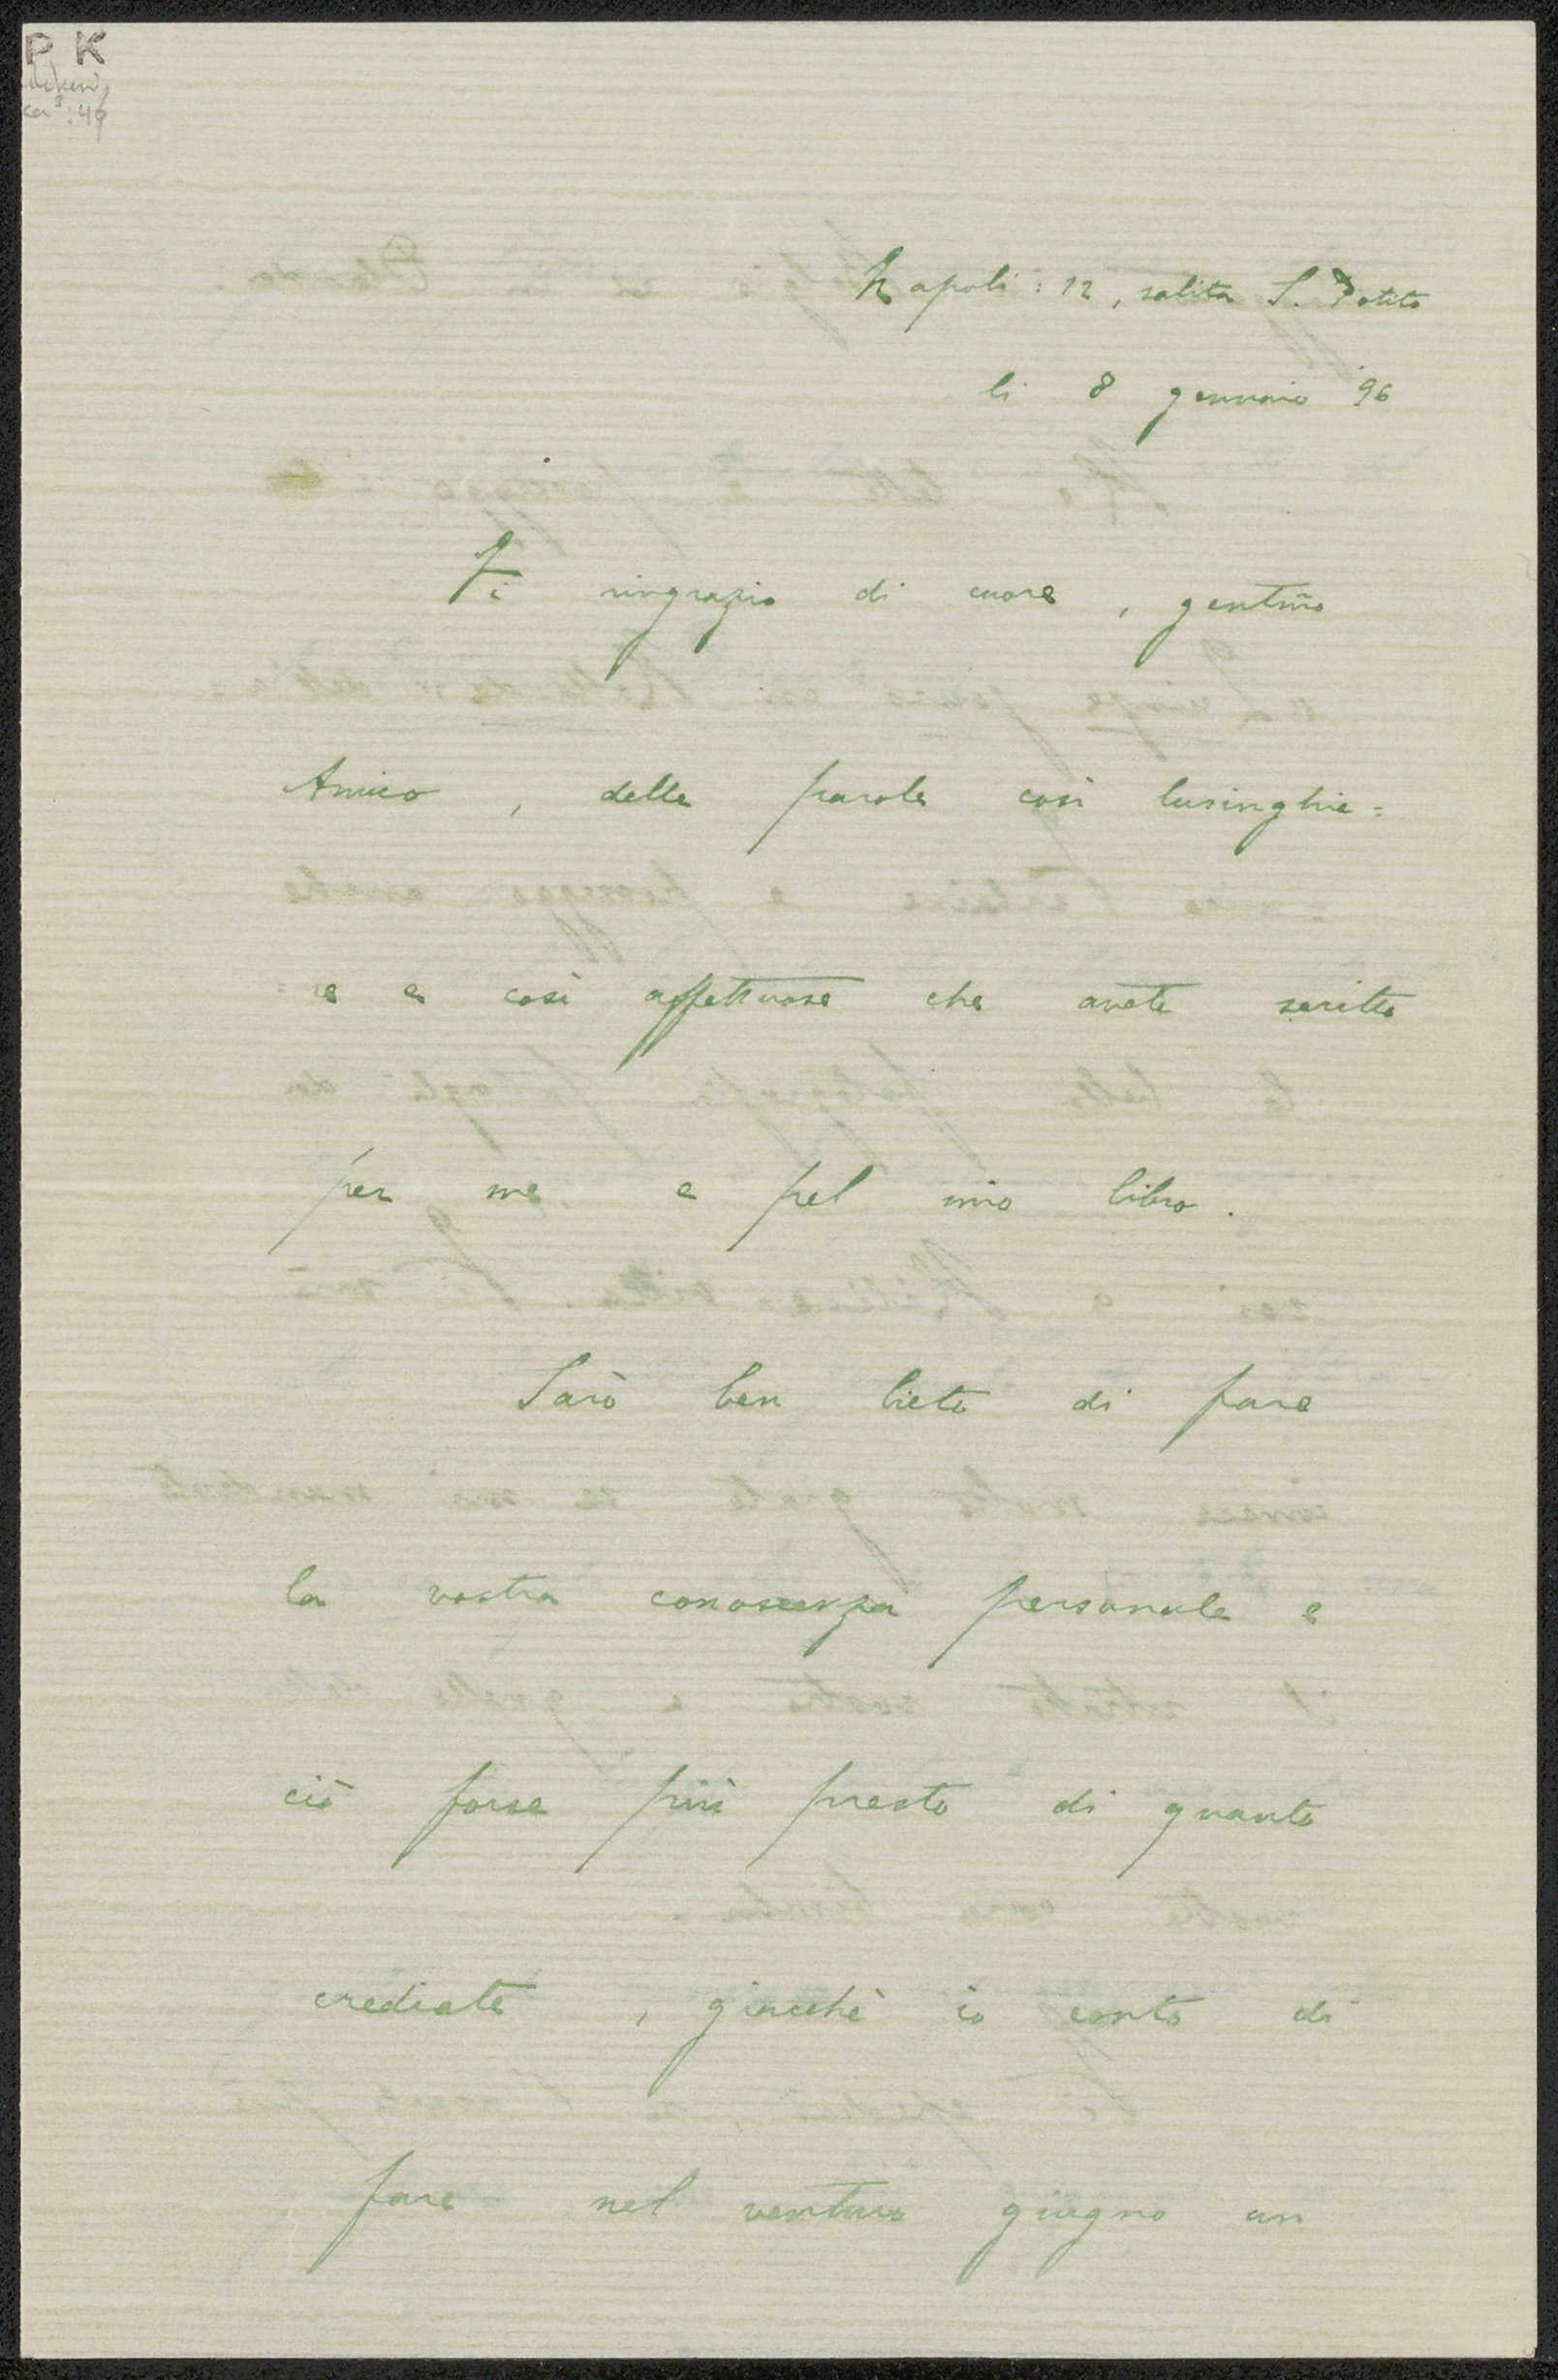 P K
Napoli : 12, salita S. Potito
li 8 gennaio '96
Vi ringrazio di cuore, gentmo
Amico, delle parole così lusinghie=
=re e così affettuose che avete scritto
per me e pel mio libro.
Sarò ben lieto di fare
la vostra conoscenza personale e
ciò forse più presto di quanto
crediate, giacchè io conto di
fare nel venturo giugno un